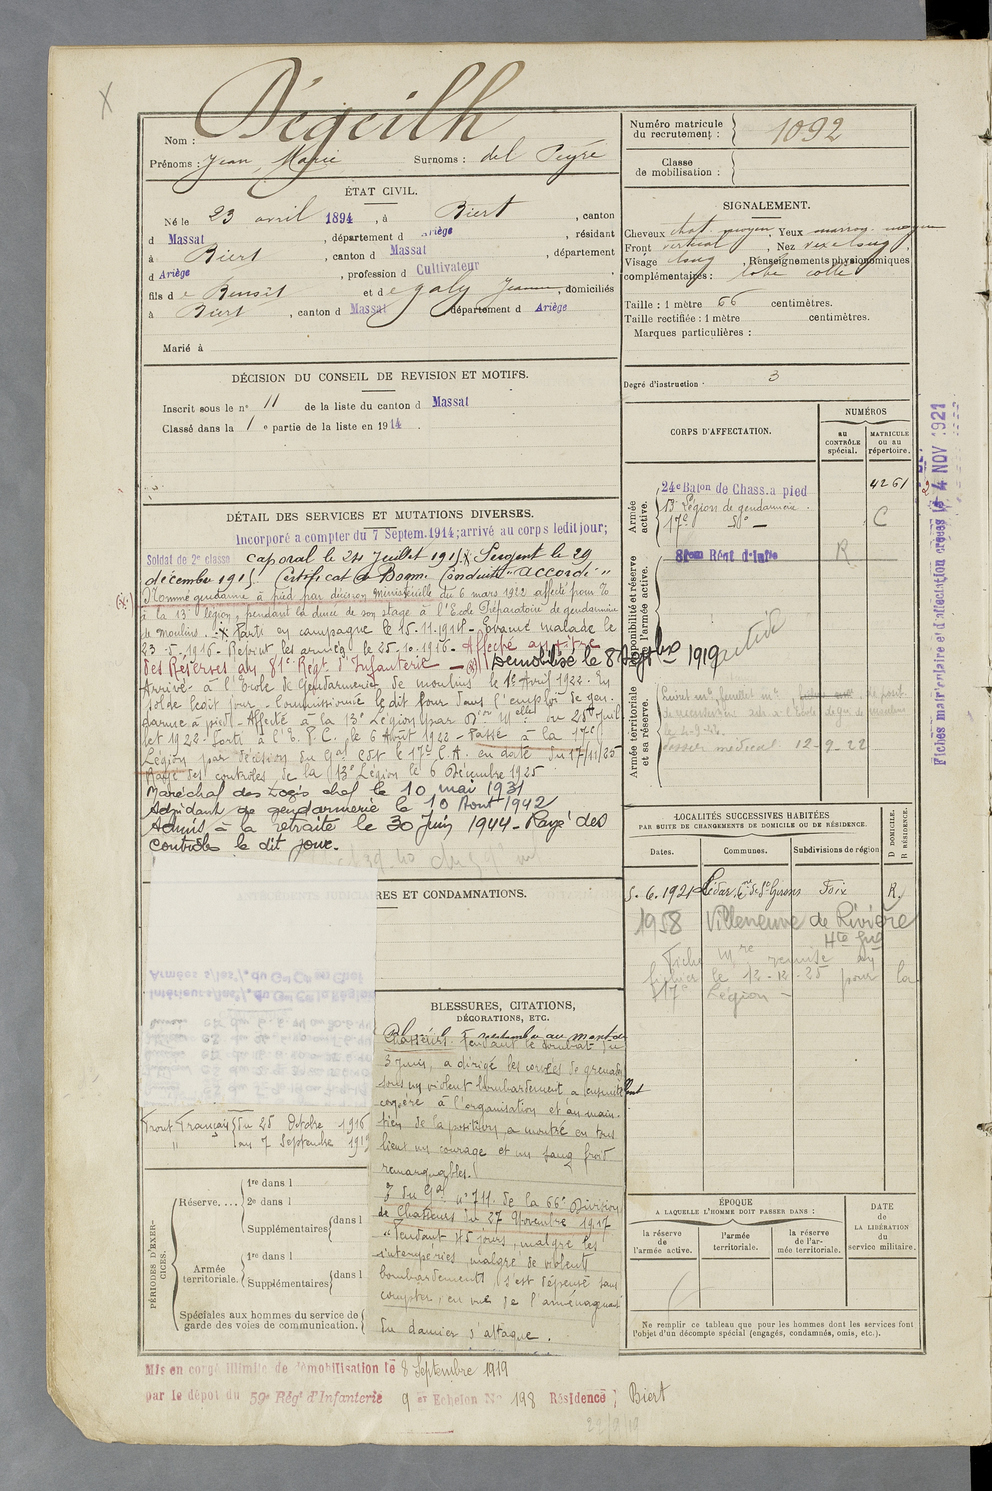 Dégeilh
Nom :
Prénoms : Jean Marie Surnoms : del Peyré
ÉTAT CIVIL.
Né le 23 avril 1894, à Biert, canton
d Massat, département d Ariège, résidant
à Biert, canton d Massat, département
d Ariège, profession d Cultivateur
fils de Benoit et de galy Jeanne, domiciliés
à Biert, canton d Massat département d Ariège
Marié à
DÉCISION DU CONSEIL DE REVISION ET MOTIFS.
Inscrit sous le n° 11 de la liste du canton d Massat
Classé dans la 1e partie de la liste en 1914.
DÉTAIL DES SERVICES ET MUTATIONS DIVERSES.
Incorporé a compter du 7 Septem. 1914; arrivé au corps ledit jour;
Soldat de 2e classe caporal le 24 Juillet 1915 Sergent le 29
décembre 1915 Certificat de Bonne Conduite "accordé"
Nommé gendarme à pied par décision ministérielle du 6 mars 1922 affecté pour
à la 13e légion, pendant la durée de son stage à l'Ecole Préparatoire de gendarmerie
de moulins. Parti en campagne le 15.11.1914 - Evacué malade le
23-5-1916 - Rejoint les armées le 25-10-1916 - Affecté
des Réserves au 81e Régt d'Infanterie - Démobilisé le 8 Septbre 1919
Arrivé à l'Ecole de Gendarmerie de moulins le 1er Avril 1922. En
solde ledit jour. Commissionné ledit jour dans l'emploi de gen-
darme à pied. Affecté à la 13e Légion par Don Mlle du 28 Juil
let 1922 - Sorti à l'E.P.C. le 6 Août 1922 - Passé à la 17e
Légion par décision du Gal Cdt le 17e C.A. en date du 17/11/25
Rayé des contrôles de la 13e Légion le 6 Décembre 1925
Maréchal des Logis chef le 10 mai 1931
Adjudant de gendarmerie le 10 Aout 1942
Admis à la retraite le 30 Juin 1944 - Rayé des
contrôles le dit jour.
RES ET CONDAMNATIONS.
BLESSURES, CITATIONS,
DÉCORATIONS, ETC.
Chasseurs. Pendant le combat du
3 Juin, a dirigé les corvées de grenades
sous un violent bombardement, a ensuite
coopéré à l'organisation et au main-
tien de la position, a montré en tous
lieux un courage et un sang froid
remarquables.
du Gal n° 711 de la 66e Division
de Chasseurs du 27 Novembre 1917
"Pendant 45 jours, malgré les
intempéries, malgré de violents
bombardements s'est dépensé sans
compter, en vue de l'aménagement
du damier d'attaque.
Front Français du 25 Octobre 1916
" au 7 Septembre 1919
PÉRIODES D'EXER-
CICES.
Réserve....
1re dans l
2e dans l
Supplémentaires dans l
Armée
territoriale.
1re dans l
Supplémentaires dans l
Spéciales aux hommes du service de
garde des voies de communication.
Mis en congé illimité de démobilisation le 8 Septembre 1919
par le dépôt du 59e Régt d'Infanterie 9 er Echelon No 198 Résidence ; Biert
22/9/19
Numéro matricule
du recrutement : 1092
Classe
de mobilisation :
SIGNALEMENT.
Cheveux chat. moyen, Yeux marron moyen
Front vertical, Nez vexe long,
Visage long, Renseignements physionomiques
complémentaires : lobe collé
Taille : 1 mètre 66 centimètres.
Taille rectifiée : 1 mètre centimètres.
Marques particulières :
Degré d'instruction · 3
CORPS D'AFFECTATION.
NUMÉROS
au
CONTRÔLE
spécial.
MATRICULE
ou au
répertoire.
Armée
active.
24e Baton de Chass. a pied 4261
13e Légion de gendarmerie
17e do — C
Disponibilité et réserve
de l'armée active.
81eme Régt d'Infie R
active
Armée territoriale
et sa réserve.
Dossier médical 12-9-22
LOCALITÉS SUCCESSIVES HABITÉES
PAR SUITE DE CHANGEMENTS DE DOMICILE OU DE RÉSIDENCE.
D DOMICILE.
R RÉSIDENCE.
Dates. Communes. Subdivisions de région
5.6.1921 Lédar, Cne de St Girons Foix R.
1958 Villeneuve de Rivière
Hte Gne
Fiche mre remise au
fichier le 12-12-25 pour la
17e Légion -
ÉPOQUE
A LAQUELLE L'HOMME DOIT PASSER DANS :
la réserve
de
l'armée active.
l'armée
territoriale.
la réserve
de l'ar-
mée territoriale.
DATE
de
LA LIBÉRATION
du
service militaire.
Ne remplir ce tableau que pour les hommes dont les services font
l'objet d'un décompte spécial (engagés, condamnés, omis, etc.).
Fiches matriculaire et d'affectation créées le 4 NOV 1921